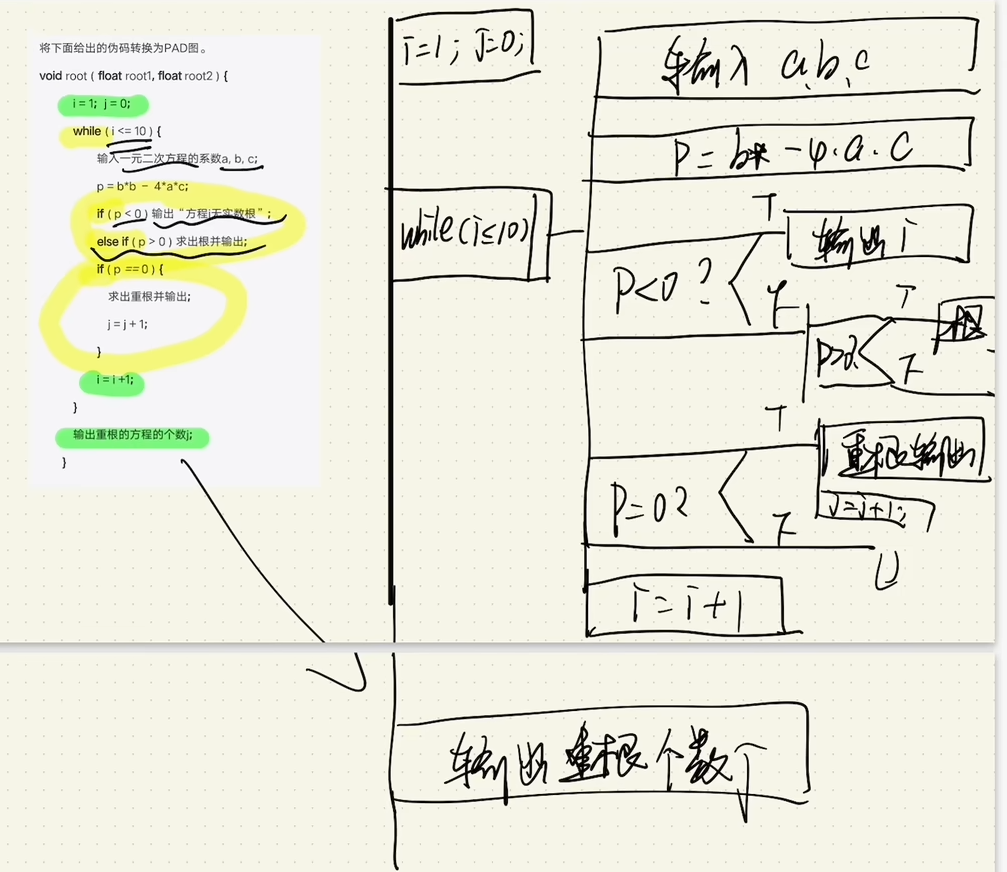 将下面给出的伪码转换为PAD图。
void root ( float root1, float root2 ) {
i = 1; j = 0;
while ( i <= 10 ) {
输入一元二次方程的系数a, b, c;
p = b*b - 4*a*c;
if ( p < 0 ) 输出 “方程i无实数根” ;
else if ( p > 0 ) 求出根并输出;
if ( p == 0 ) {
求出重根并输出;
j = j + 1;
}
i = i +1;
}
输出重根的方程的个数j;
}
i=1; j=0;
while(i≤10)
输入 a,b,c
P = b* -4·a·c
P<0?
T
输出 i
F
P>0?
T
根
F
P=0?
T
重根输出
j=j+1;
F
i=i+1
输出重根个数j